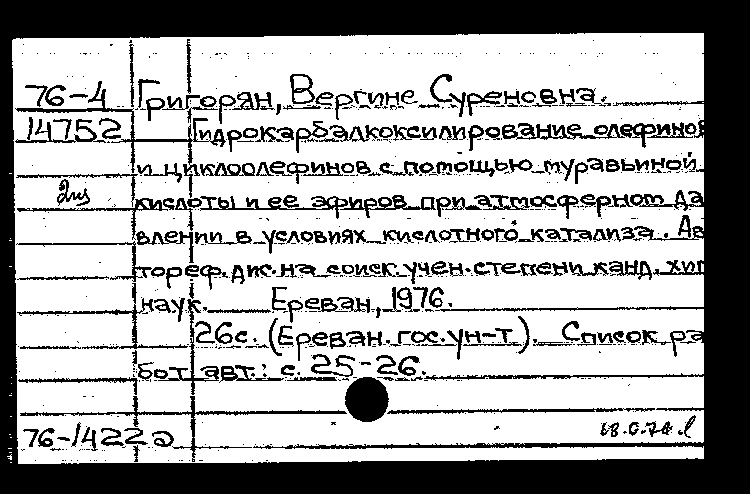 76-4 Григорян, Вергине Суреновна.
14752 Гидрокарбалкоксилирование олефинов
и циклоолефинов с помощью муравьиной
кислоты и ее эфиров при атмосферном да
влении в условиях кислотного катализа. Ав
тореф. дис. на соиск. учен. степени канд. хим
наук. Ереван, 1976.
26с. (Ереван. гос. ун-т). Список ра
бот авт.: с. 25-26.
76-14220